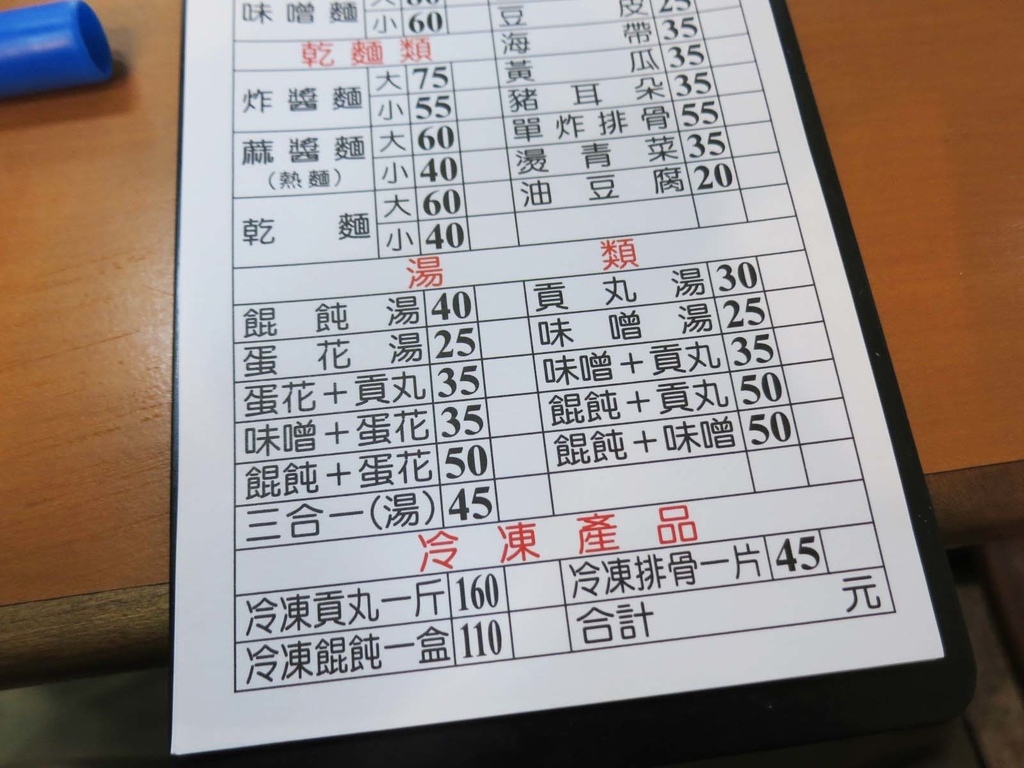 味噌麵 小 60
豆皮 25
海帶 35
乾麵類
黃瓜 35
炸醬麵 大 75
小 55
豬耳朵 35
單炸排骨 55
麻醬麵 大 60
(熱麵) 小 40
燙青菜 35
油豆腐 20
乾麵 大 60
小 40
湯類
餛飩湯 40 貢丸湯 30
蛋花湯 25 味噌湯 25
蛋花+貢丸 35 味噌+貢丸 35
味噌+蛋花 35 餛飩+貢丸 50
餛飩+蛋花 50 餛飩+味噌 50
三合一(湯) 45
冷凍產品
冷凍貢丸一斤 160 冷凍排骨一片 45
冷凍餛飩一盒 110 合計 元